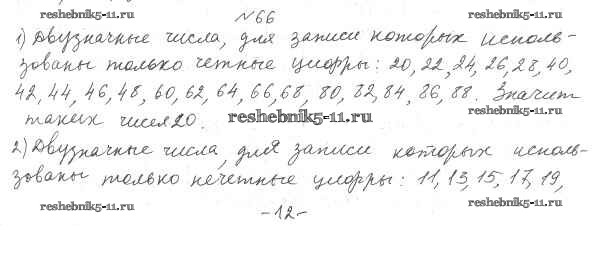 №66
reshebnik5-11.ru reshebnik5-11.ru
1) Двузначные числа, для записи которых исполь-
зованы только четные цифры: 20, 22, 24, 26, 28, 40,
42, 44, 46, 48, 60, 62, 64, 66, 68, 80, 82, 84, 86, 88. Значит
таких чисел 20.
reshebnik5-11.ru
2) Двузначные числа, для записи которых исполь-
зованы только нечетные цифры: 11, 13, 15, 17, 19,
reshebnik5-11.ru reshebnik5-11.ru
-12-